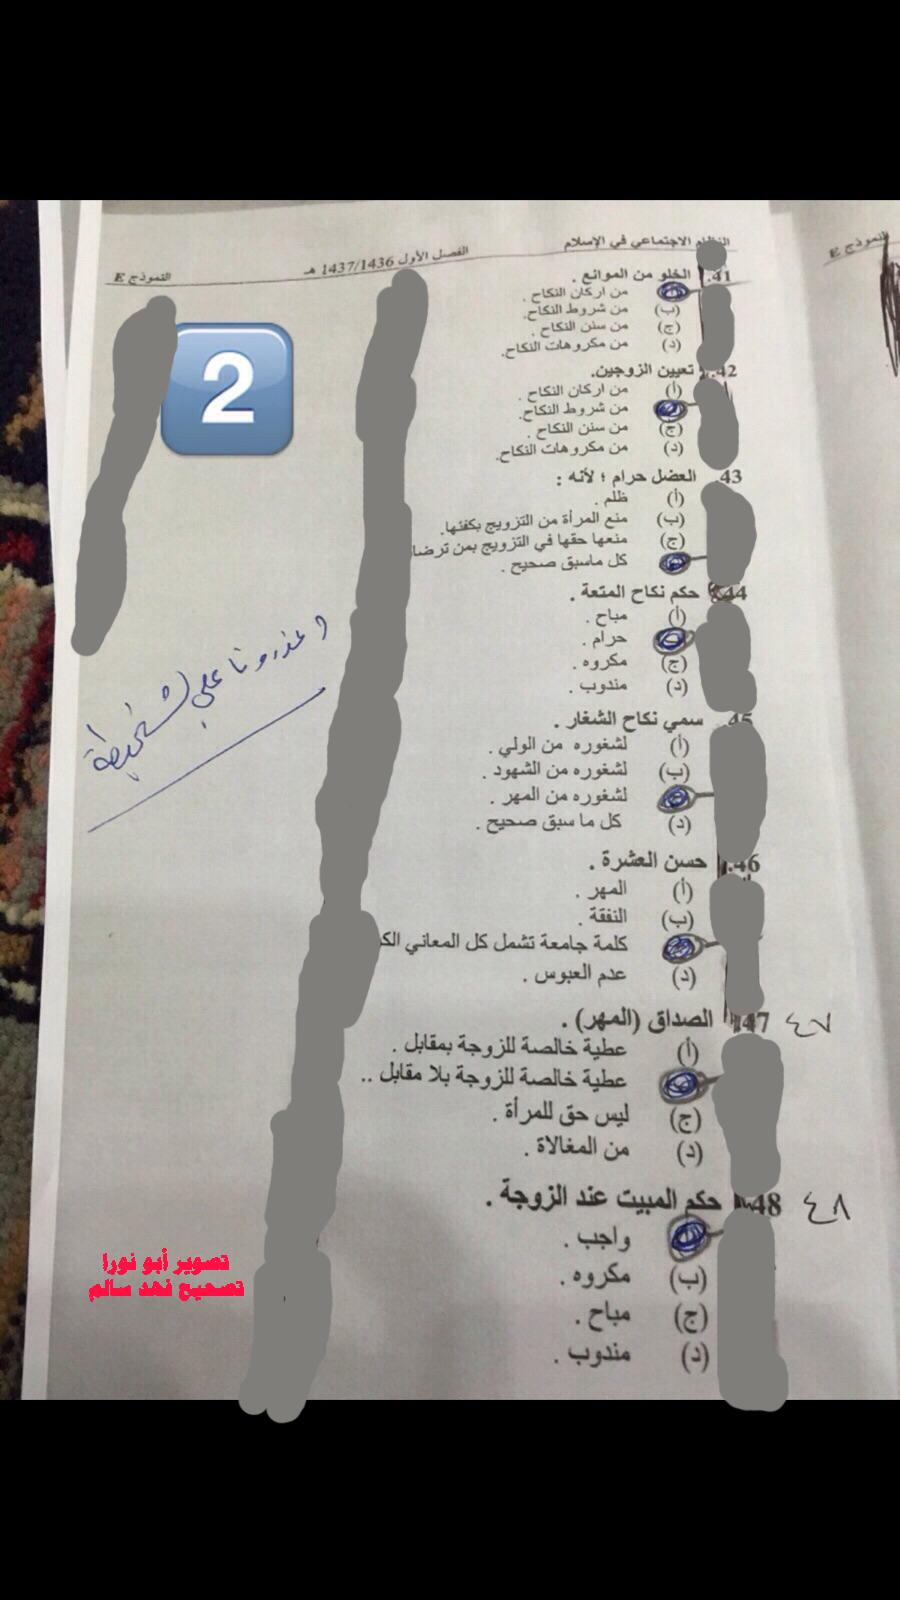 النظام الاجتماعي في الإسلام
الفصل الأول 1437/1436 هـ
النموذج E
النموذج E
41. الخلو من الموانع .
من اركان النكاح .
(ب) من شروط النكاح.
(ج) من سنن النكاح .
(د) من مكروهات النكاح.
42. تعيين الزوجين.
(أ) من اركان النكاح .
من شروط النكاح.
(ج) من سنن النكاح .
(د) من مكروهات النكاح.
43. العضل حرام ؛ لأنه :
(أ) ظلم .
(ب) منع المرأة من التزويج بكفئها.
(ج) منعها حقها في التزويج بمن
كل ماسبق صحيح .
44. حكم نكاح المتعة .
(أ) مباح .
حرام .
(ج) مكروه .
(د) مندوب .
45. سمي نكاح الشغار .
(أ) لشغوره من الولي .
(ب) لشغوره من الشهود .
لشغوره من المهر .
(د) كل ما سبق صحيح .
46. حسن العشرة .
(أ) المهر .
(ب) النفقة .
كلمة جامعة تشمل كل المعاني
(د) عدم العبوس .
٤٧ 47. الصداق (المهر) .
(أ) عطية خالصة للزوجة بمقابل .
عطية خالصة للزوجة بلا مقابل ..
(ج) ليس حق للمرأة .
(د) من المغالاة .
٤٨ 48. حكم المبيت عند الزوجة .
واجب .
(ب) مكروه .
(ج) مباح .
(د) مندوب .
2
واعذرونا على الشخبطة
تصوير أبو نورا
تصحيح فهد سالم